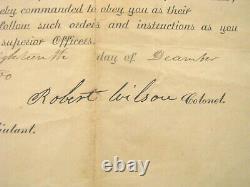 eby commanded to obey you as their
follow such orders and instructions as you
superior Officers.
ighteenth day of Deamber
Robert Wilson Colonel.
jutant.